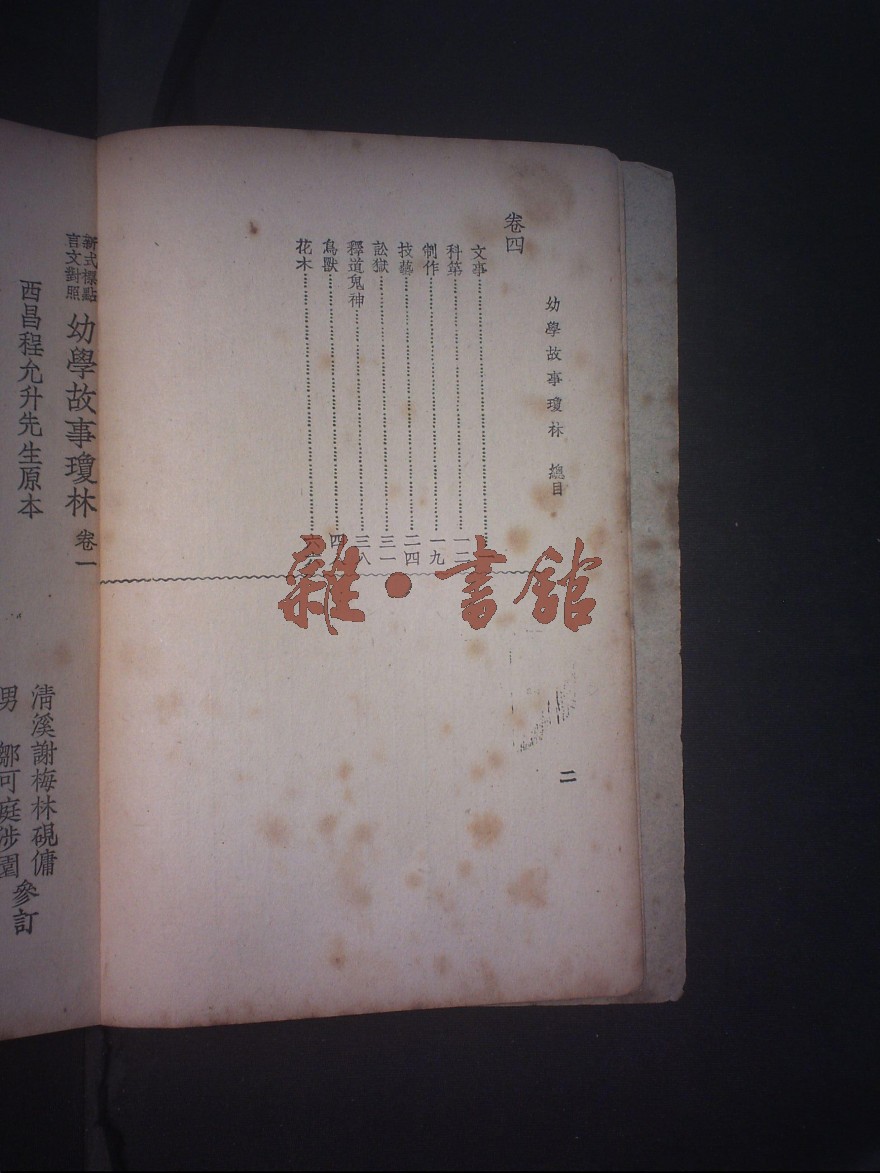 幼學故事瓊林 總目
二
卷四
文事
科第……一二
制作……一九
技藝……二四
訟獄……三一
釋道鬼神……三八
鳥獸……四
花木
雜·書館
新式標點
言文對照
幼學故事瓊林 卷一
西昌程允升先生原本
清溪謝梅林硯傭
男 鄒可庭涉園
參訂